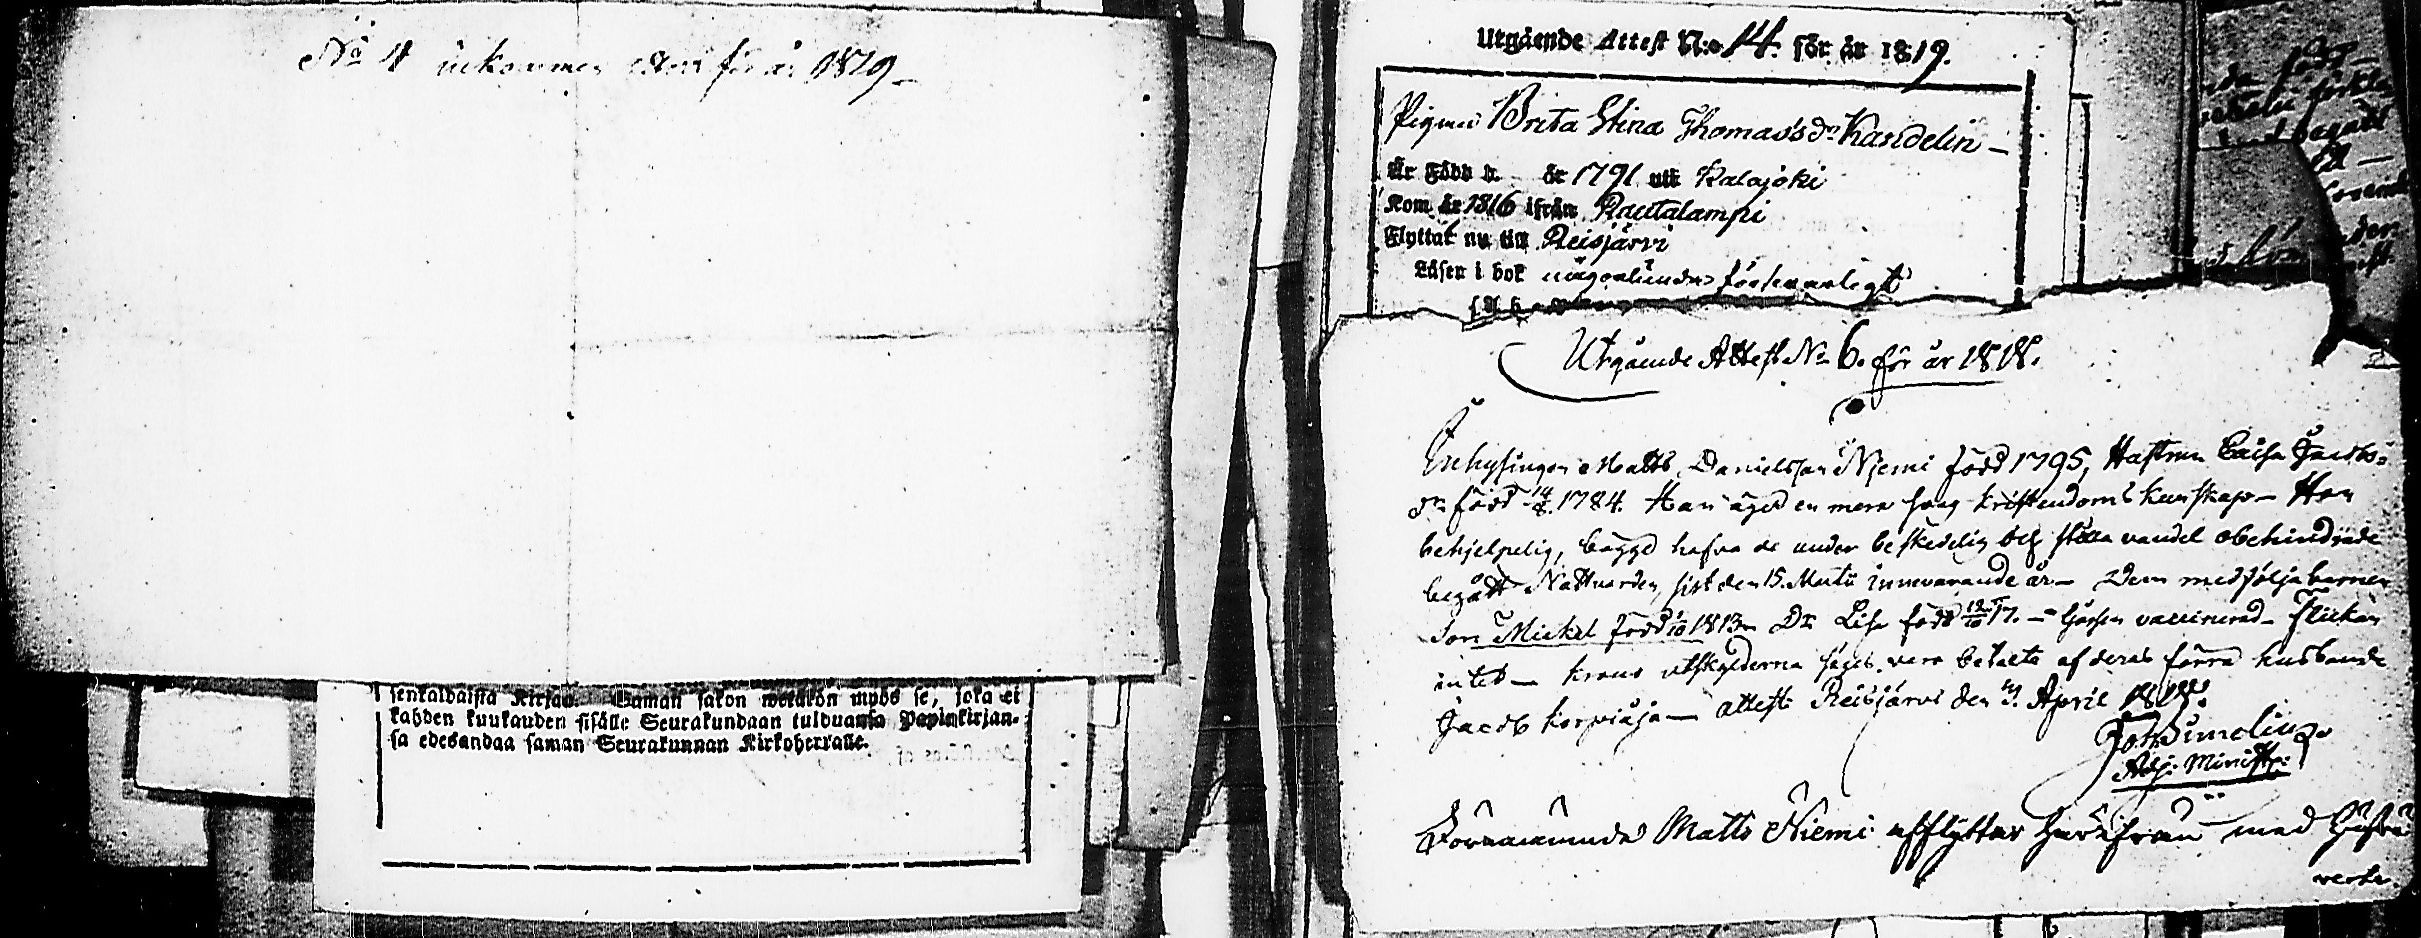 No 4 inkommen attest för år 1819
senkaldaista Kirjan. Saman sakon wetäkön myös se, joka ei
kahden kuukauden sisälle Seurakundaan tulduansa Papinkirjan-
sa edesandaa saman Seurakunnan Kirkoherralle.
Utgående Attest N:o 14. för år 1819.
Pigan Brita Stina Thomasdr Kandelin
Är Född d. år 1791 uti Kalajoki
Kom år 1816 ifrån Rautalampi
Flyttat nu till Reisjärvi
Läser i bok någorlunda försvarligt
Utgående Attest No 6. för år 1818.
Inhysingen Matts Danielsson Niemi född 1795, Hustrun Caisa Jacobs-
dr född 14/8 1784. Han äger en mera svag kristendoms kunskap - Hon
behjelpelig, bägge hafva de under beskedelig och stilla vandel obehindrade
begått Nattvarden, sist den 15. Martii innevarande år - Dem medfölja barnen
Son Mickel född 1/10 1813 Dr Lisa född 19/10 17. - Gossen vaccinerad - Flickan
intet - Krono utskylderna säges vara betalte af deras förra husbonde
Jacob Korpioja - attest. Reisjärvi den 4. April 1818.
Joh. Simelius
Adj. Ministr:
Förenämnde Matts Niemi afflyttar härifrån med Hustru
verte.